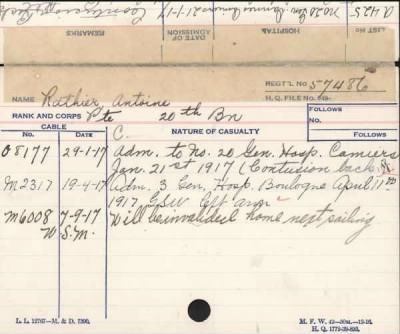 A 425
LIST No.
HOSPITAL
DATE OF ADMISSION
21-1-17
REMARKS
REG'T'L No 57486
H. Q. FILE No. 649-
NAME Rathier Antoine
RANK AND CORPS Pte 20th Bn
CABLE
No. DATE
C. NATURE OF CASUALTY
FOLLOWS
No.
FOLLOWS
O8177 29-1-17 Adm. to No. 20 Gen. Hosp. Camiers
Jan. 21st 1917 (Contusion back
M2317 19-4-17 Adm. 3 Gen. Hosp. Boulogne April 11th
1917. GSW left arm
M6008 7-9-17 Will be invalided home next sailing
W.S.M.
L. L. 12707—M. & D. 7390.
M. F. W. 42—50M.—12-16.
H. Q. 1772-39-893.